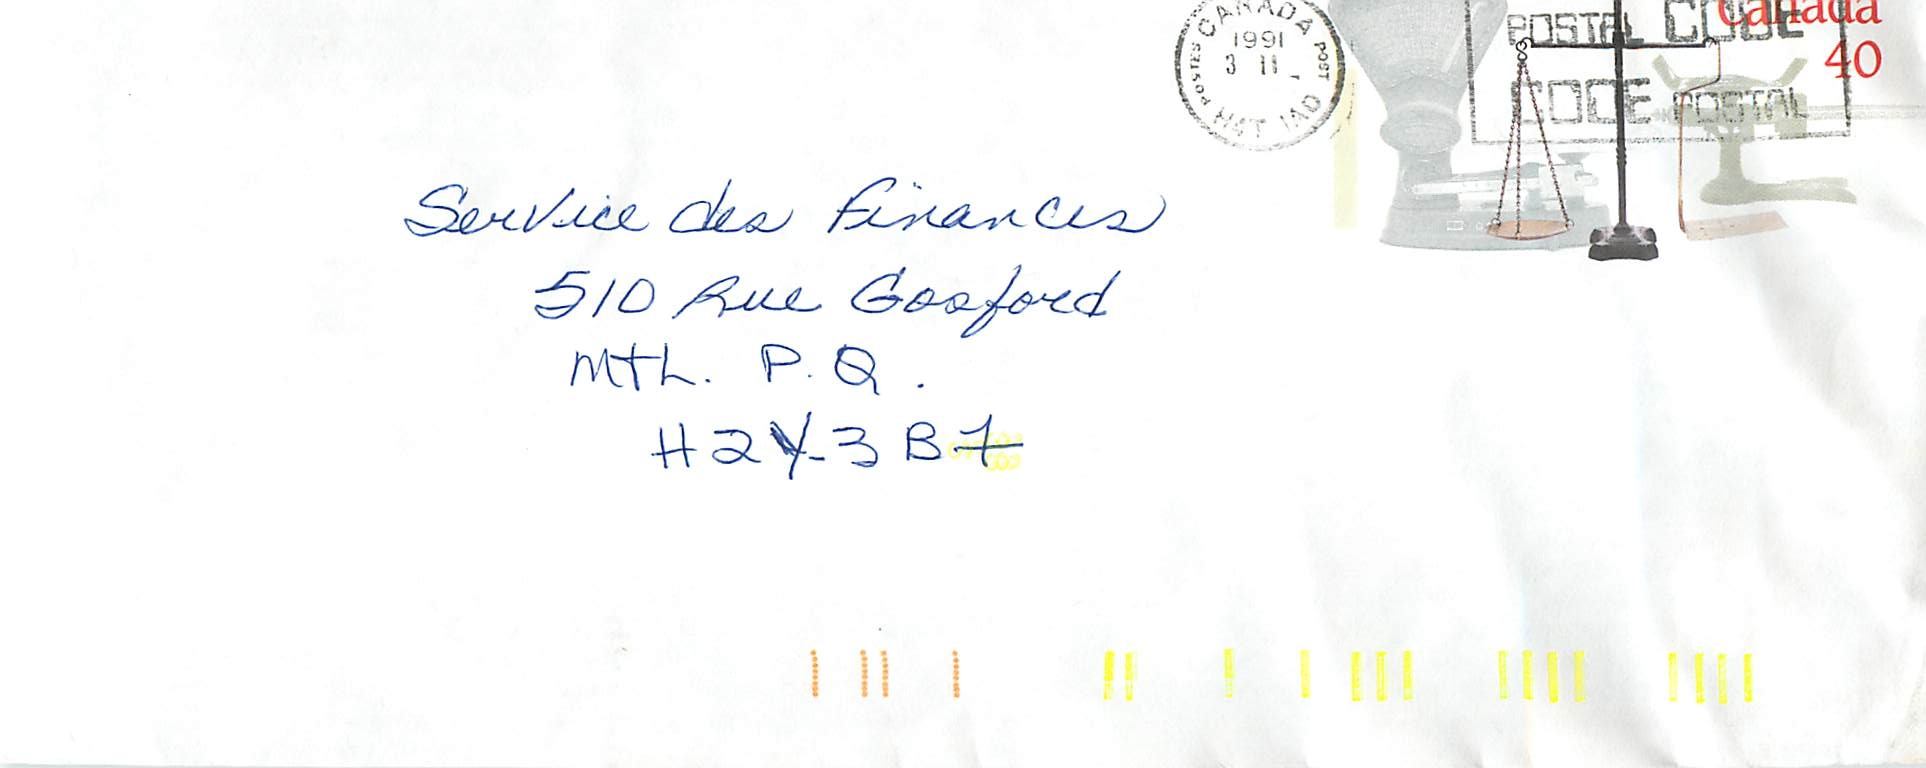 CANADA
1991
3 II
POSTES
POST
H4T 1A0
POSTAL CODE
CODE POSTAL
Canada
40
Service des Finances
510 Rue Gosford
MTL. P.Q.
H2Y-3B7